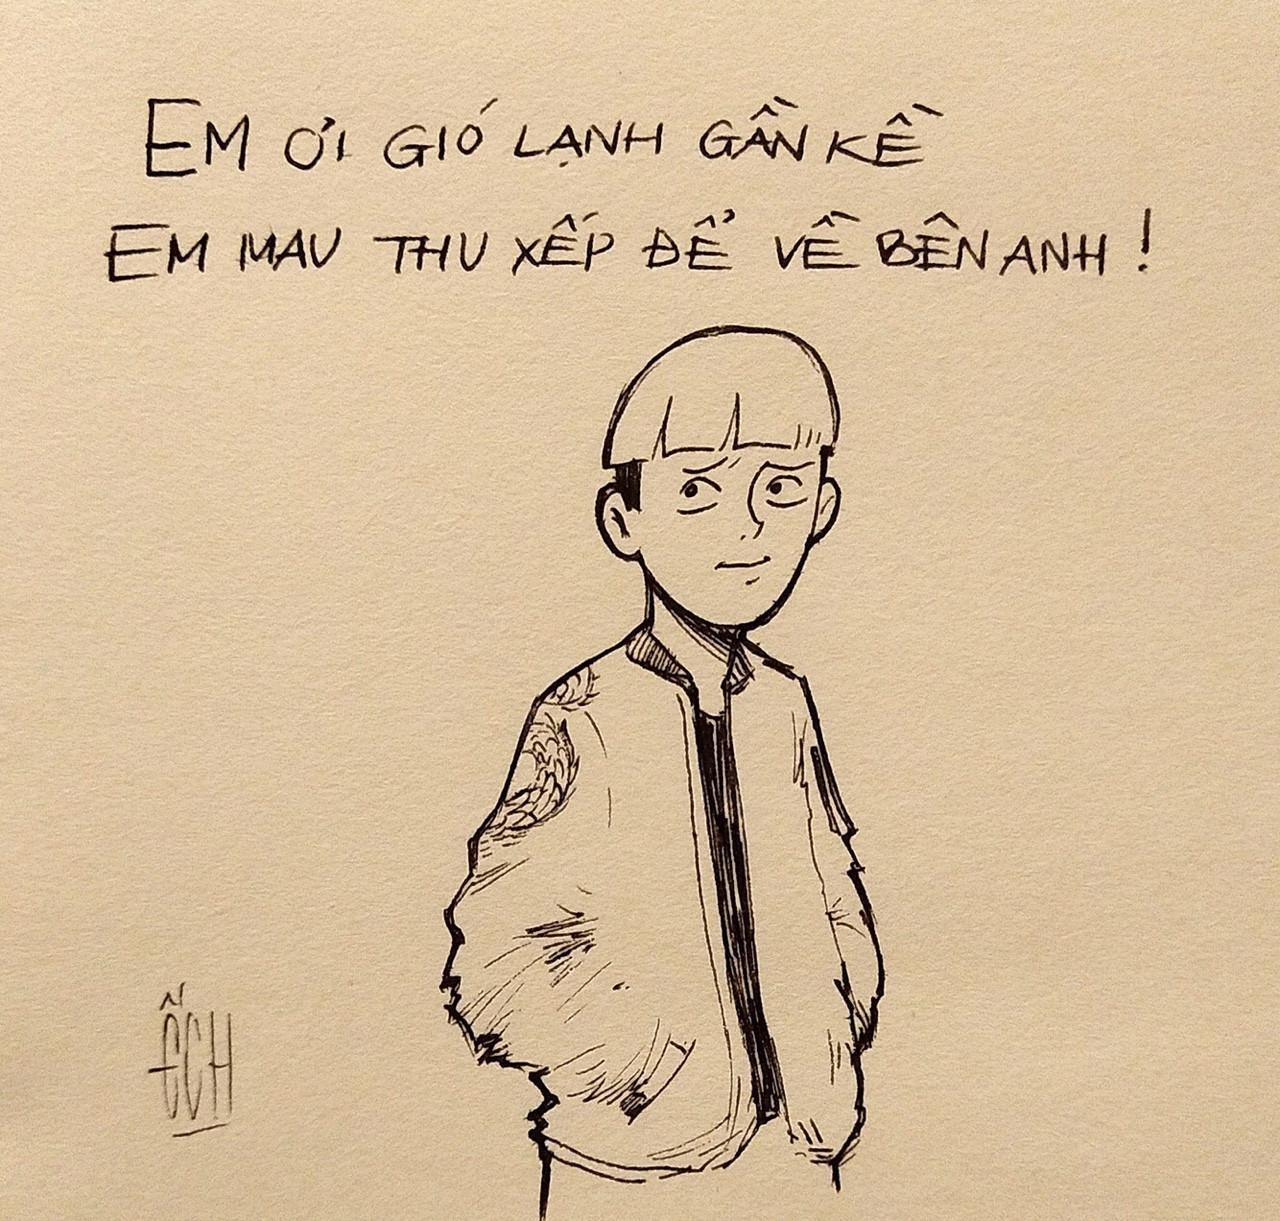 EM ƠI GIÓ LẠNH GẦN KỀ
EM MAU THU XẾP ĐỂ VỀ BÊN ANH !
ỄCH